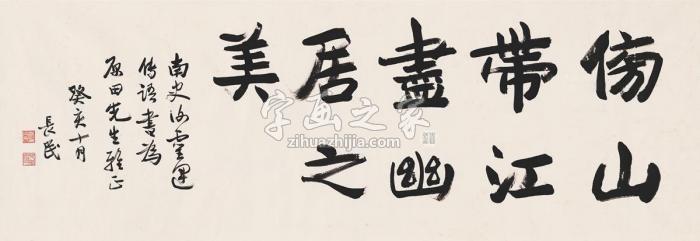 傍山
帶江
盡幽
居之
美
南史謝靈運
傳語書為
原田先生雅正
癸亥十月
長民
字画之家
zihuazhijia.com